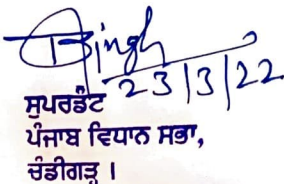 Singh
23/3/22
ਸੁਪਰਡੰਟ
ਪੰਜਾਬ ਵਿਧਾਨ ਸਭਾ,
ਚੰਡੀਗੜ੍ਹ ।